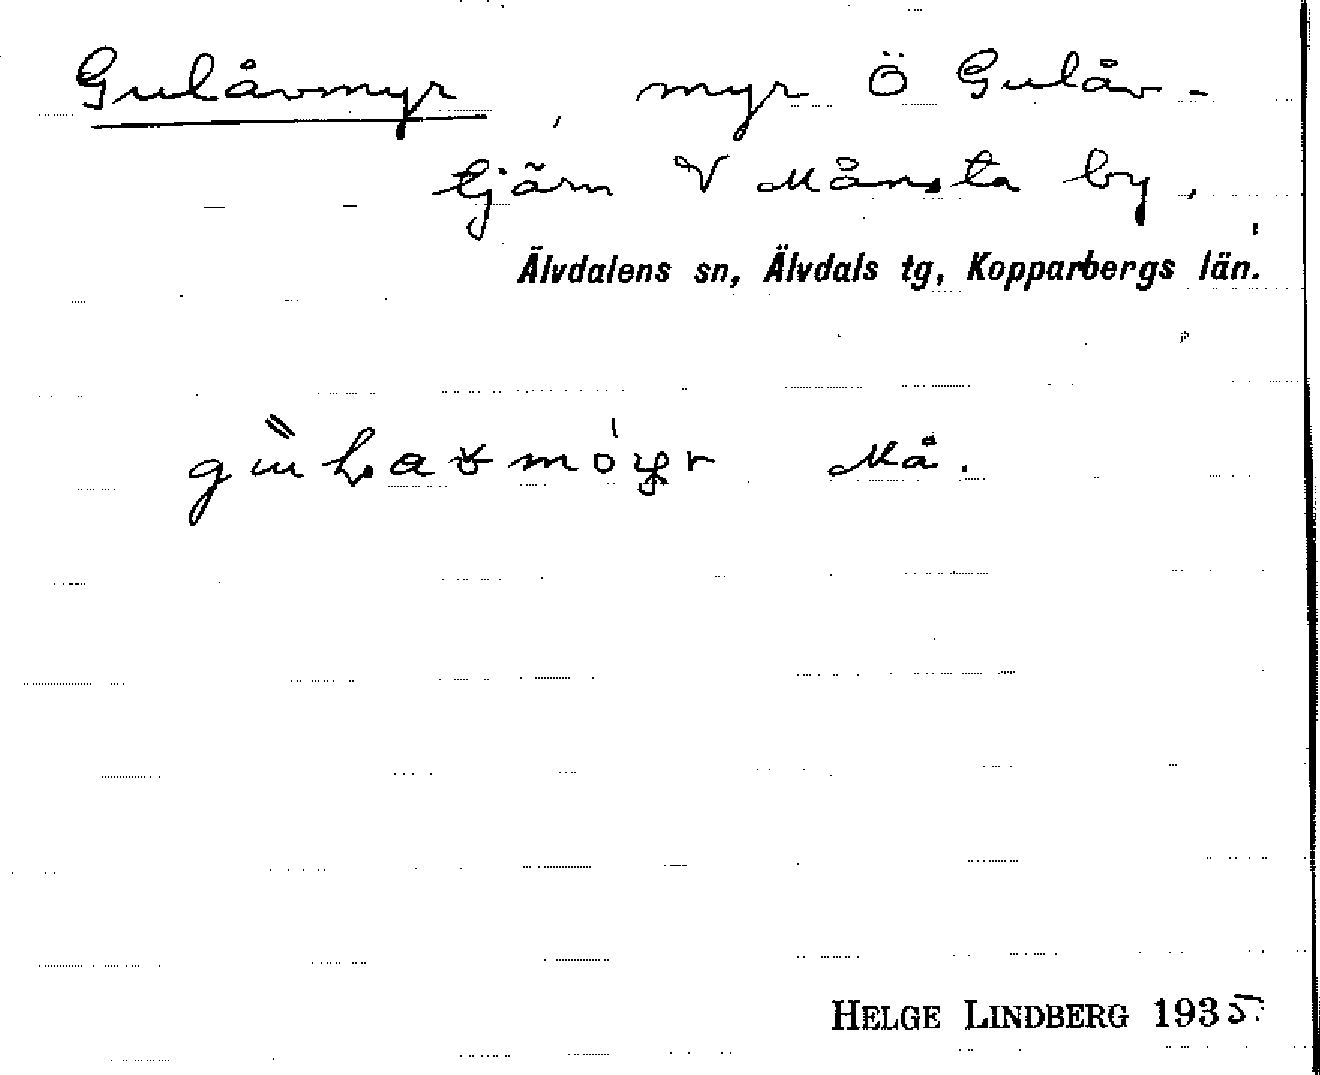 Gulåvmyr, myr Ö Gulåv-
tjärn V Månsta by.
Älvdalens sn, Älvdals tg, Kopparbergs län.
Må.
HELGE LINDBERG 1935